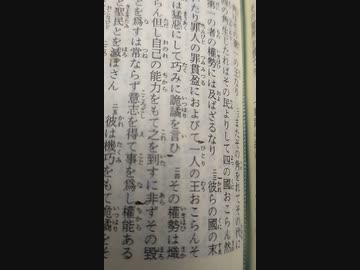 たればその民よりして四の國おこらん然
の者の權勢には及ばざるなり 二三 彼らの國の末
たり罪人の罪貫盈におよびて一人の王おこらんそ
は猛惡にして巧みに詭譎を言ひ 二四 その權勢は熾
らん但し自己の能力をもて之を到すに非ずその毀
とを爲すは常ならず意志を得て事を爲し權能ある
と聖民とを滅ぼさん 二五 彼は機巧をもて詭譎をそ